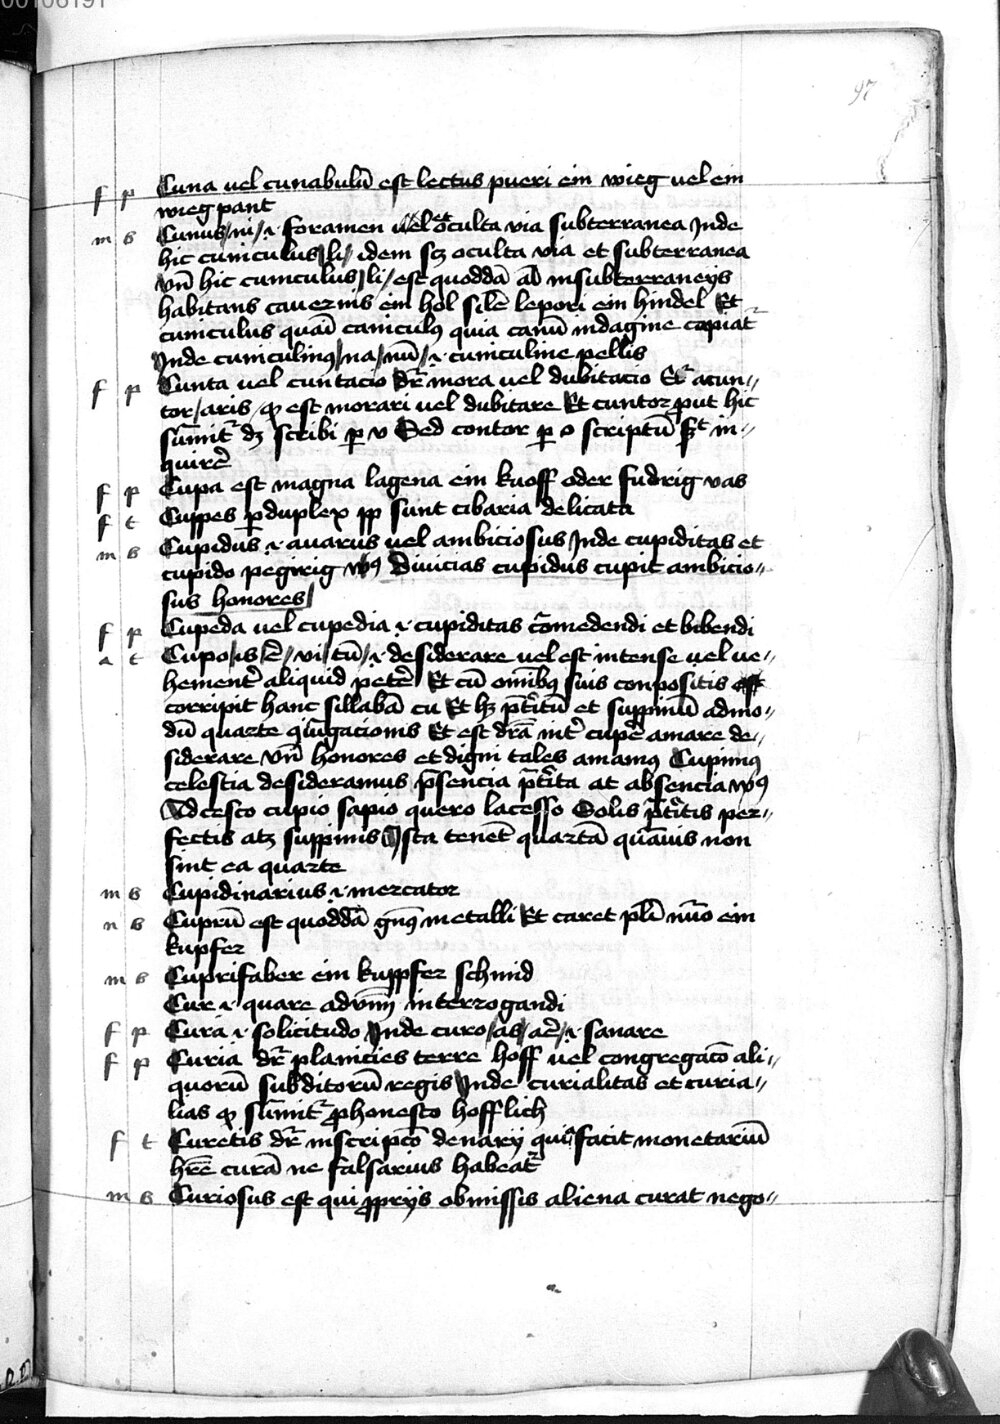 00106191
97
f p Cuna uel cunabulū est lectus pueri ein wieg uel ein
wiegpant
m s Cunus/ni/ .i. foramen uel oculta via subterranea Inde
hic cuniculus/li/ idem scz oculta via et subterranea
vn̄ hic cuniculus/li/ est quoddā al insubterraneys
habitans cauernis ein hol silē lepori ein hindel Et
cuniculus quasi caniculus quia canū indagine capiat᷑
Inde cuniculinus/na/nū/ .i. cuniculine pellis
f p Cunta uel cuntacio dr̄ mora uel dubitacio Et acun//
tor/aris/ qd est morari uel dubitare Et cuntor put hic
sūmit᷑ dz scribi p v Sed contor p o scriptū st in//
quirē
f p Cupa est magna lagena ein kuoff oder fudrig vas
f t Cuppes p duplex pp sunt cibaria delicata
m s Cupidus .i. auarus uel ambiciosus Inde cupiditas et
cupido pegirig vsus Diuicias cupidus cupit ambicio//
sus honores/
f p Cupeda uel cupedia .i. cupiditas comedendi et bibendi
a t Cupo/is/ē/ui/tū/ .i. desiderare uel est intense uel ue//
hement᷑ aliquid petē Et cū omībus suis conpositis
corripit hanc sillabā cu Et hz pt̄itū et suppinū admo//
dū quarte 9iugacionis Et est dr̄a int᷑ cupē amare de//
siderare vn̄ honores et digni tales amamus Cupimus
celestia desideramus p̄sencia pt̄ita at absencia vsus
Arcesco cupio sapio quero lacesso Solis pt̄itis per//
fectis atz suppinis Ista tenet quartā quāuis non
sint ea quarte
m s Cupidinarius .i. mercator
n s Cuprū est quoddā gn̄us metalli Et caret plī nūo ein
kupfer
m s Cuprifaber ein kuppfer schmid
Cur .i. quare aduerbiū interrogandi
f p Cura .i. solicitudo Inde curo/as/aē/ .i. sanare
f p Curia dr̄ planicies terre hoff uel congregacō ali//
quorū subditorū regis Inde curialitas et curia//
lias qd sūmit᷑ p honesto hofflich
f t Curetis dr̄ inscripcō denarij quia facit monetariū
hr̄e curā ne falsarius habeat᷑
m s Curiosus est qui pprijs obmissis aliena curat nego//